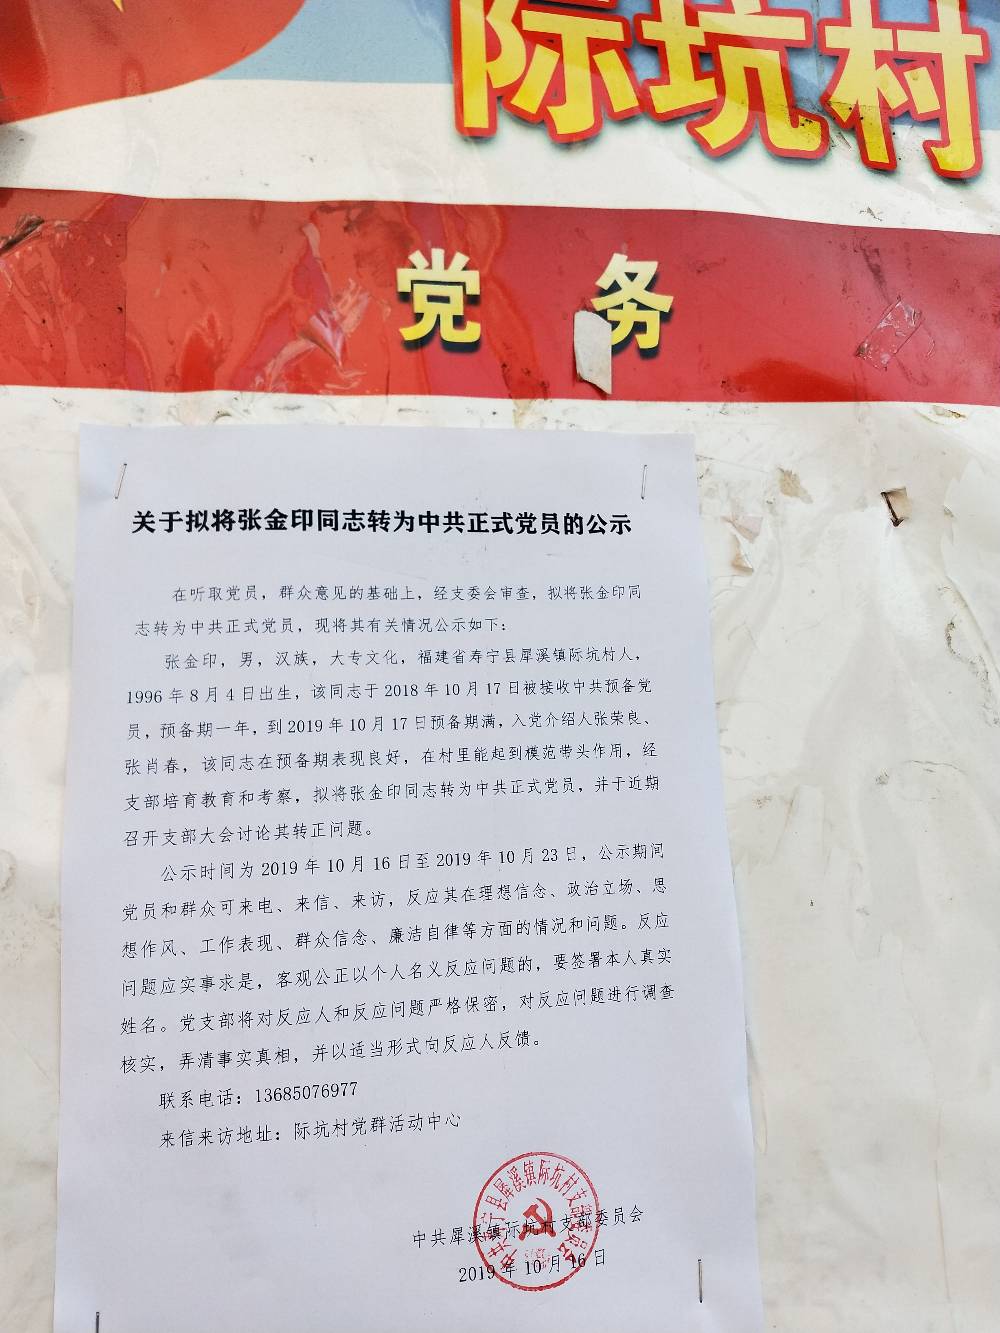 际坑村
党 务
关于拟将张金印同志转为中共正式党员的公示
在听取党员，群众意见的基础上，经支委会审查，拟将张金印同
志转为中共正式党员，现将其有关情况公示如下：
张金印，男，汉族，大专文化，福建省寿宁县犀溪镇际坑村人，
1996年8月4日出生，该同志于2018年10月17日被接收中共预备党
员，预备期一年，到2019年10月17日预备期满，入党介绍人张荣良、
张肖春，该同志在预备期表现良好，在村里能起到模范带头作用，经
支部培育教育和考察，拟将张金印同志转为中共正式党员，并于近期
召开支部大会讨论其转正问题。
公示时间为2019年10月16日至2019年10月23日，公示期间
党员和群众可来电、来信、来访，反应其在理想信念、政治立场、思
想作风、工作表现、群众信念、廉洁自律等方面的情况和问题。反应
问题应实事求是，客观公正以个人名义反应问题的，要签署本人真实
姓名。党支部将对反应人和反应问题严格保密，对反应问题进行调查
核实，弄清事实真相，并以适当形式向反应人反馈。
联系电话：13685076977
来信来访地址：际坑村党群活动中心
中共寿宁县犀溪镇际坑村支部委员会
中共犀溪镇际坑村支部委员会
2019年10月16日